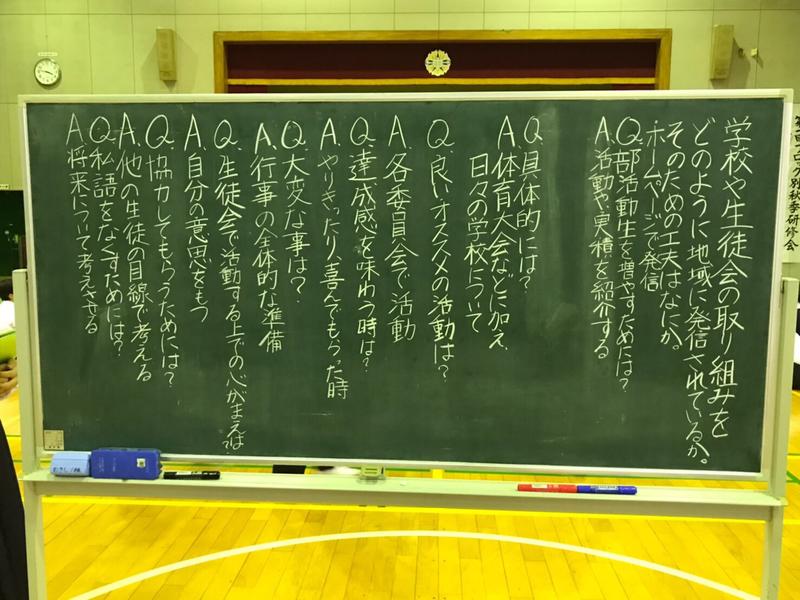 学校や生徒会の取り組みを
どのように地域に発信されているか。
そのための工夫はなにか。
ホームページで発信
Q.部活動生を増やすためには?
A.活動や実積を紹介する
Q.具体的には?
A.体育大会などに加え、
日々の学校について
Q.良いオススメの活動は?
A.各委員会で活動
Q.達成感を味わう時は?
A.やりきったり、喜んでもらった時
Q.大変な事は?
A.行事の全体的な準備
Q.生徒会で活動する上での心がまえは?
A.自分の意思をもつ
Q.協力してもらうためには?
A.他の生徒の目線で考える
Q.私語をなくすためには?
A.将来について考えさせる
別秋季研修会